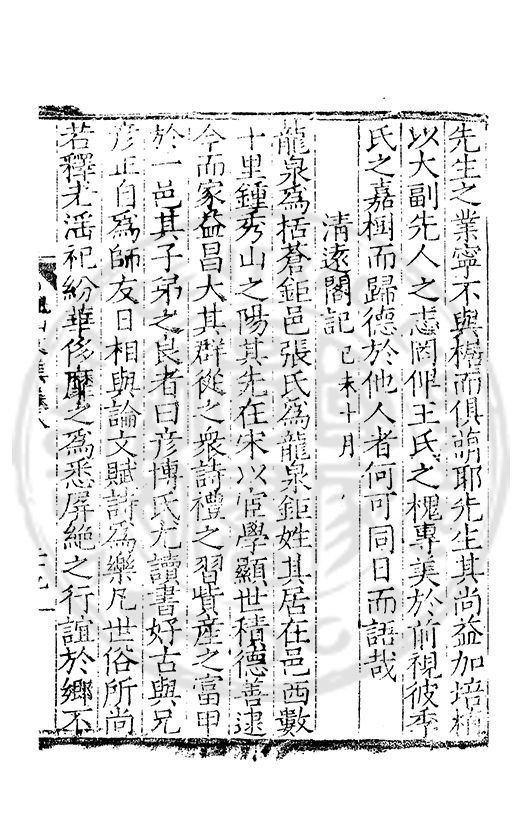 先生之業寧不與槐而俱萌耶先生其尚益加培
以大副先人之志罔俾王氏之槐專美於前視彼季
氏之嘉樹而歸德於他人者何可同日而語哉
清遠閣記 己未十月
龍泉爲括蒼鉅邑張氏爲龍泉鉅姓其居在邑西數
十里鍾秀山之陽其先在宋以宦學顯世積德善逮
今而家益昌大其群從之衆詩禮之習貲産之富甲
於一邑其子弟之良者曰彦博氏尤讀書好古與兄
彦正自爲師友日相與論文賦詩爲樂凡世俗所尚
若釋老滛祀紛華侈靡之爲悉屏絶之行誼於鄉不